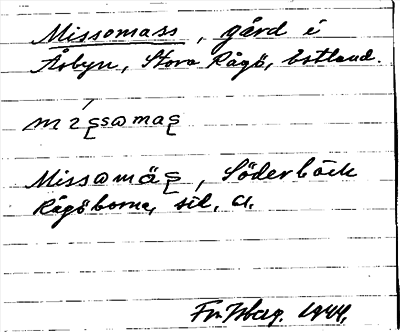 Missomass, gård i
Åsbyn, Stora Rågö, Estland.
mi̍ʂsɷmaʂ
Missɷmäʂ, Söderbäck
Rågöborna, sid. a.
1944.